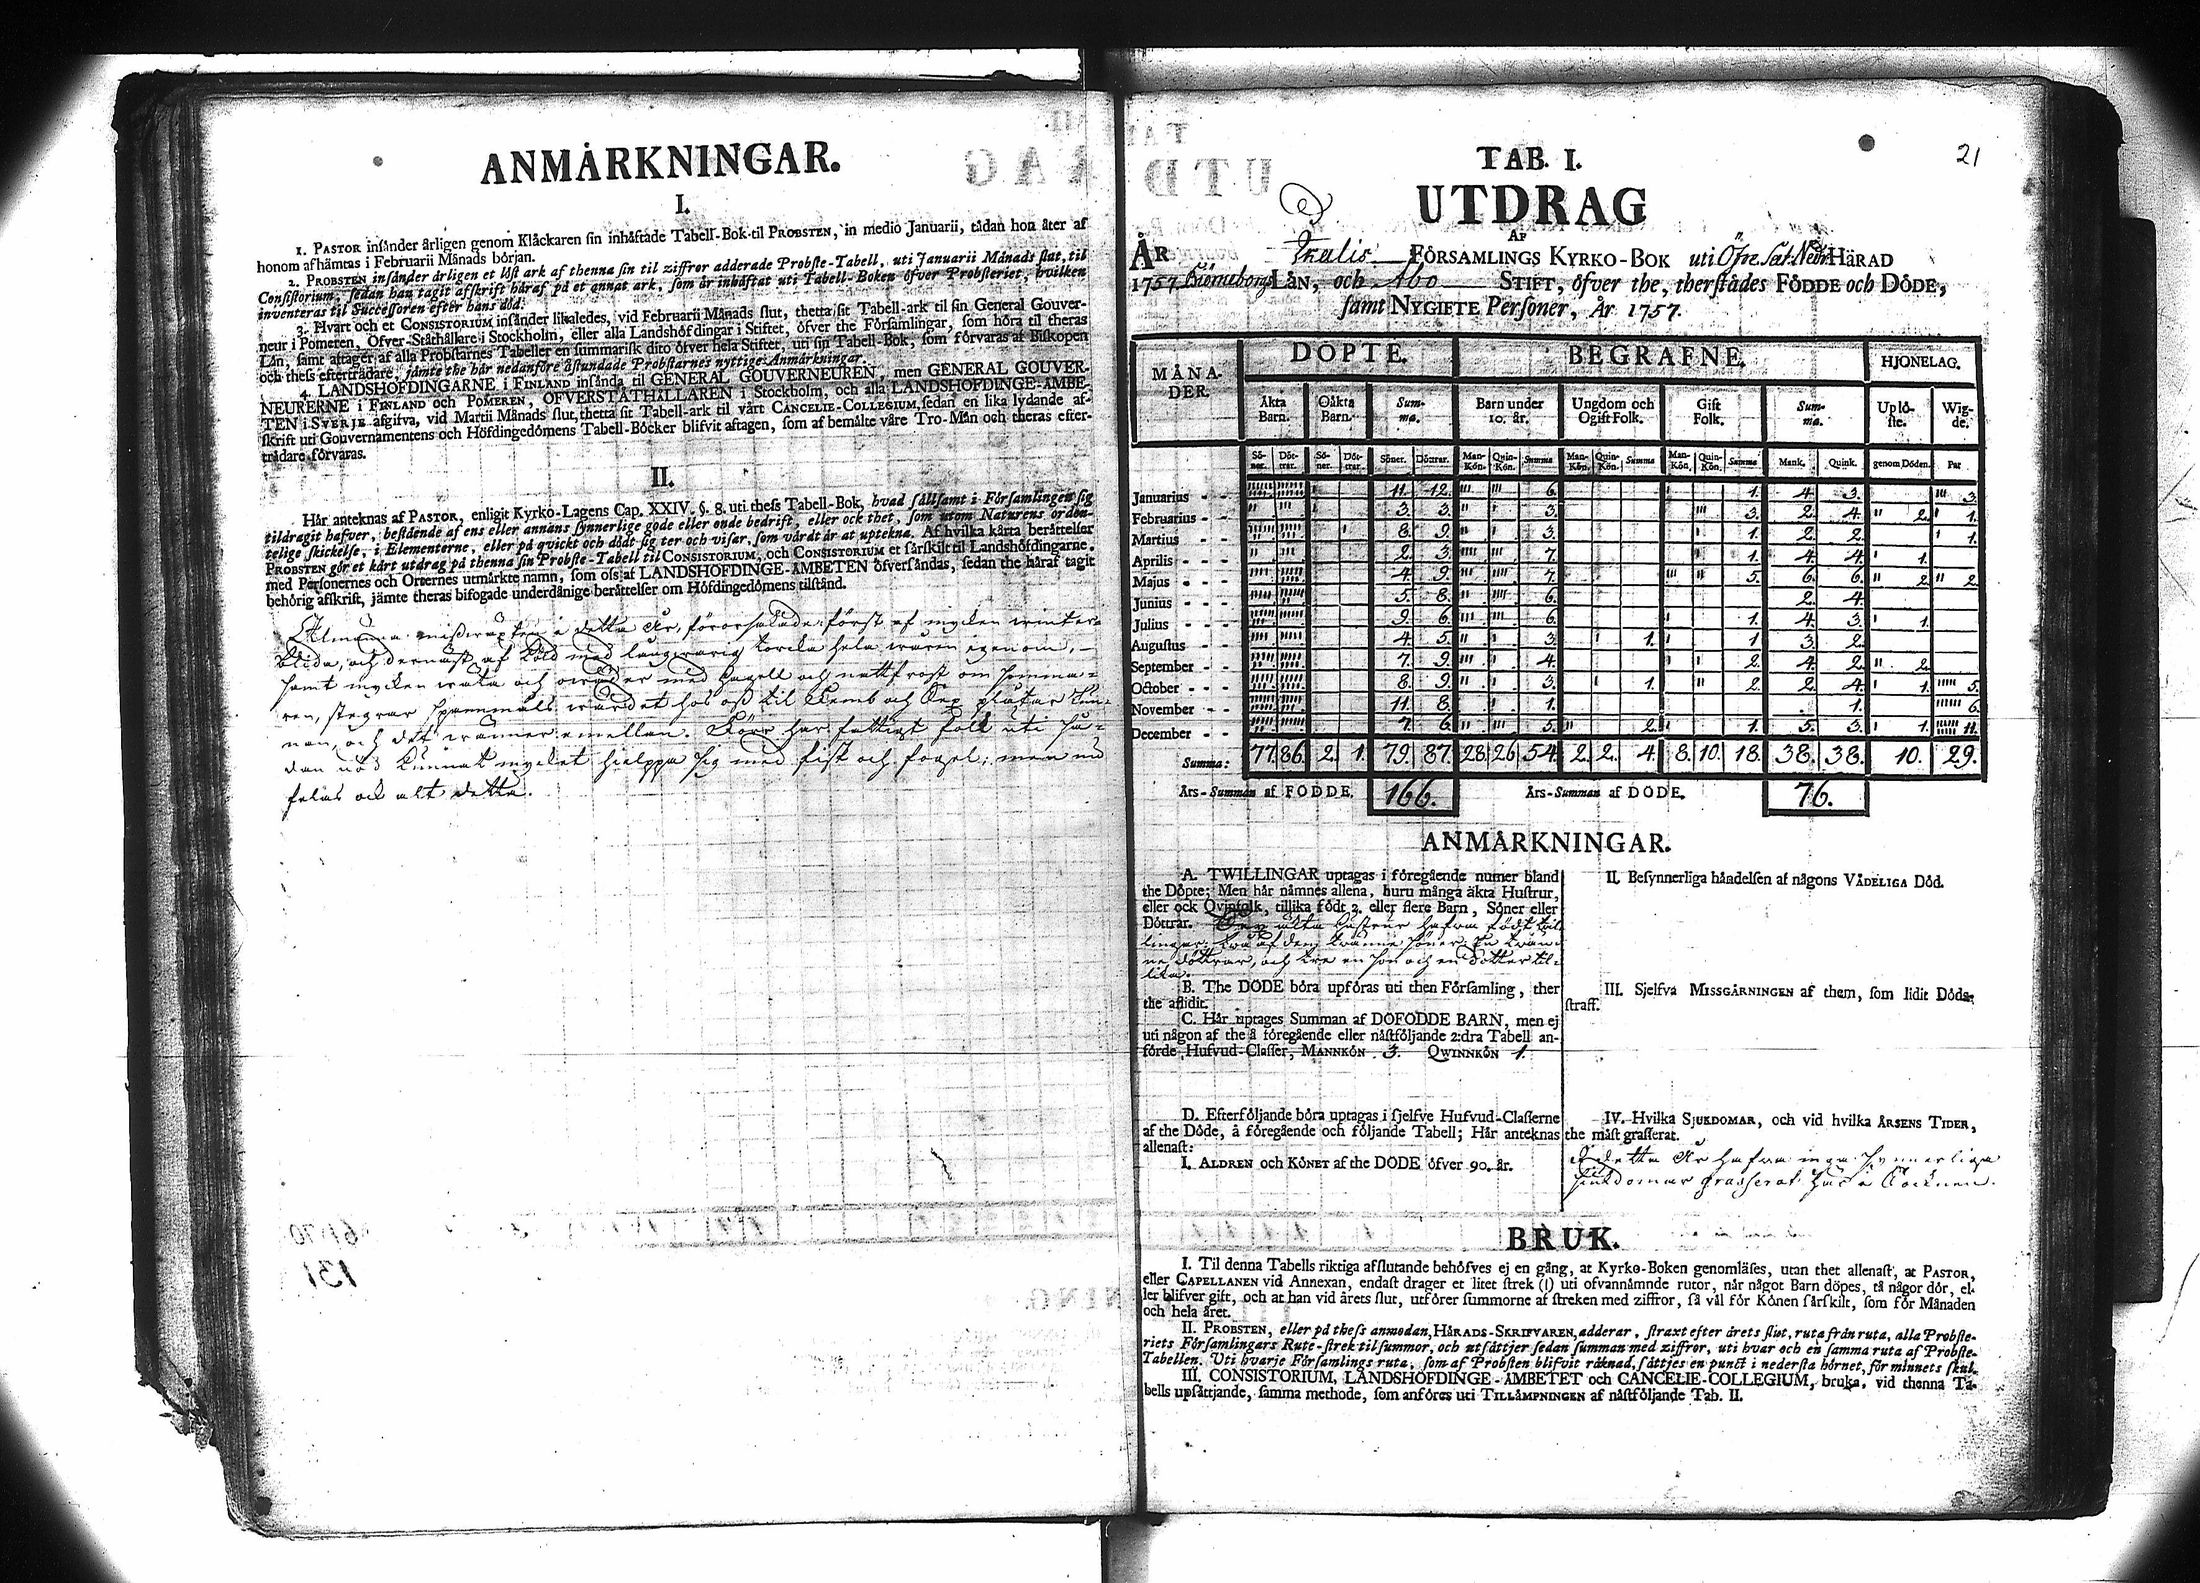 ANMÅRKNINGAR.
I.
1. PASTOR insånder årligen genom Klåckaren sin inhåftade Tabell-Bok til PROBSTEN, in medio Januarii, tådan hon åter af
honom afhämtas i Februarii Månads början.
2. PROBSTEN insånder årligen et löst ark af thenna sin til ziffror adderade Probste-Tabell, uti Januarii Månads slut, til
Consistorium, sedan han tagit afskrift håraf på et annat ark, som år inhåftat uti Tabell-Boken öfver Probsteriet, hvilken
inventeras til Successoren efter hans död.
3. Hvart och et CONSISTORIUM insånder likaledes, vid Februarii Månads slut, thetta sit Tabell-ark til sin General Gouver-
neur i Pomeren, Öfver-Ståthållare i Stockholm, eller alla Landshöfdingar i Stiftet, öfver the Församlingar, som höra til theras
Län, samt aftager af alla Probstarnes Tabeller en summarisk dito öfver hela Stiftet, uti sin Tabell-Bok, som förvaras af Biskopen
och thess efterträdare, jämte the hår nedanföre åstundade Probstarnes nyttige Anmårkningar.
4. LANDSHÖFDINGARNE i FINLAND insånda til GENERAL GOUVERNEUREN, men GENERAL GOUVER-
NEURERNE i FINLAND och POMEREN, ÖFVERSTÅTHÅLLAREN i Stockholm, och alla LANDSHÖFDINGE-ÅMBE-
TEN i SVERJE afgifva, vid Martii Månads slut, thetta sit Tabell-ark til vårt CANCELIE-COLLEGIUM, sedan en lika lydande af-
skrift uti Gouvernamentens och Höfdingedömens Tabell-Böcker blifvit aftagen, som af bemålte våre Tro-Mån och theras efter-
trådare förvaras.
II.
Hår anteknas af PASTOR, enligit Kyrko-Lagens Cap. XXIV. §. 8. uti thess Tabell-Bok, hvad sållsamt i Församlingen sig
tildragit hafver, bestående af ens eller annans synnerlige gode eller onde bedrift, eller ock thet, som utom Naturens orden-
telige skickelse, i Elementerne, eller på qvickt och dödt sig ter och visar, som vårdt år at uptekna. Af hvilka kårta beråttelser
PROBSTEN gör et kårt utdrag på thenna sin Probste-Tabell til CONSISTORIUM, och CONSISTORIUM et sårskilt til Landshöfdingarne.
med Personernes och Orternes utmårkte namn, som oss af LANDSHÖFDINGE-ÅMBETEN öfversåndas, sedan the håraf tagit
behörig afskrift, jämte theras bifogade underdånige beråttelser om Höfdingedömens tilstånd.
Almänna misswäxten i detta år, förorsakade först af mycken winter-
blida, och dernäst af köld med långwarig torcka hela wåren igenom,
samt mycken wäta och owäder med hagell och nattfrost om somma-
ren, stegrar spannmåls wärdet hos oss til femb och sex platar tun-
nan, och det wänner emellan. Förr har fattigt folk uti så-
dan nöd kunnat mycket hielppa sig med fisk och fogel; men nu
felas ock alt detta.
21
TAB. I.
UTDRAG
AF
ÅR FÖRSAMLINGS KYRKO-BOK uti Öfre Sat: Nedre HÄRAD
1757 Biörneborgs LÄN, och Åbo STIFT, öfver the, therstådes FÖDDE och DÖDE,
samt NYGIFTE Personer, År 1757.
MÅNADER. DÖPTE. BEGRAFNE. HJONELAG.
Åkta Barn. Oåkta Barn. Summa. Barn under 10. år. Ungdom och Ogift Folk. Gift Folk. Summa. Uplöste. Wigde.
Söner. Döttrar. Söner. Döttrar. Söner. Döttrar. Man-Kön. Quin-Kön. Summa Man-Kön. Quin-Kön. Summa Man-Kön. Quin-Kön. Summa Mank. Quink. genom Döden. Par
Januarius 11. 12. 6. 1. 4. 3. 3.
Februarius 3. 3. 3. 3. 2. 4. 2. 1.
Martius 8. 9. 3. 1. 2. 2. 1.
Aprilis 2. 3. 7. 1. 4. 4. 1.
Majus 4. 9. 7. 5. 6. 6. 2. 2.
Junius 5. 8. 6. 2. 4.
Julius 9. 6. 6. 1. 4. 3. 1.
Augustus 4. 5. 3. 1. 1 3. 2.
September 7. 9. 4. 2. 4. 2. 2.
October 8. 9. 3. 1. 2. 2. 4. 1. 5.
November 11. 8. 1. 1. 6.
December 7. 6. 5. 2. 1. 5. 3. 1. 11.
Summa: 77. 86. 2. 1. 79. 87. 28. 26 54. 2. 2. 4. 8. 10. 18. 38. 38. 10. 29.
Års-Summan af FÖDDE. 166. Års-Summan af DÖDE. 76.
ANMÅRKNINGAR.
A. TWILLINGAR uptagas i föregående numer bland
the Döpte; Men hår nåmnes allena, huru många åkta Hustrur,
eller ock Qvinfolk, tillika födt 2. eller flere Barn, Söner eller
Döttrar. Sex äkta hustrur hafwa födt twil-
lingar, två af dem tvänne söner, en tvän-
ne döttrar, och tre en son och en dotter til-
lika.
B. The DÖDE böra upföras uti then Församling, ther
the aflidit.
C. Hår uptages Summan af DÖFÖDDE BARN, men ej
uti någon af the å föregående eller nåstföljande 2:dra Tabell an-
förde Hufvud-Classer, MANNKÖN 3. QWINNKÖN 1.
D. Efterföljande böra uptagas i sjelfve Hufvud-Classerne
af the Döde, å föregående och följande Tabell; Hår anteknas
allenast:
I. ÅLDREN och KÖNET af the DÖDE öfver 90. år.
II. Besynnerliga håndelsen af någons VÅDELIGA Död.
III. Sjelfva MISSGÅRNINGEN af them, som lidit Döds-
straff.
IV. Hvilka SJUKDOMAR, och vid hvilka ÅRSENS TIDER,
the måst grasserat.
I detta år hafwa inga synnerliga
siukdomar grasserat här i Socknen.
BRUK.
I. Til denna Tabells riktiga afslutande behöfves ej en gång, at Kyrko-Boken genomläses, utan thet allenast, at PASTOR,
eller CAPELLANEN vid Annexan, endast drager et litet strek (I) uti ofvannåmnde rutor, når något Barn döpes, tå någor dör, el-
ler blifver gift, och at han vid årets slut, utförer summorne af streken med ziffror, så vål för Könen sårskilt, som för Månaden
och hela året.
II. PROBSTEN, eller på thess anmodan, HÅRADS-SKRIFVAREN, adderar, straxt efter årets slut, ruta från ruta, alla Probste-
riets Församlingars Rute-strek tilsummor, och utsåttjer sedan summan med ziffror, uti hvar och en samma ruta af Probste-
Tabellen. Uti hvarje Församlings ruta, som af Probsten blifvit råknad, såttjes en punct i nedersta hörnet, för minnets skul.
III. CONSISTORIUM, LANDSHÖFDINGE-ÅMBETET och CANCELIE-COLLEGIUM, bruka, vid thenna Ta-
bells upsåttjande, samma methode, som anföres uti TILLÅMPNINGEN af nåstföljande Tab. II.